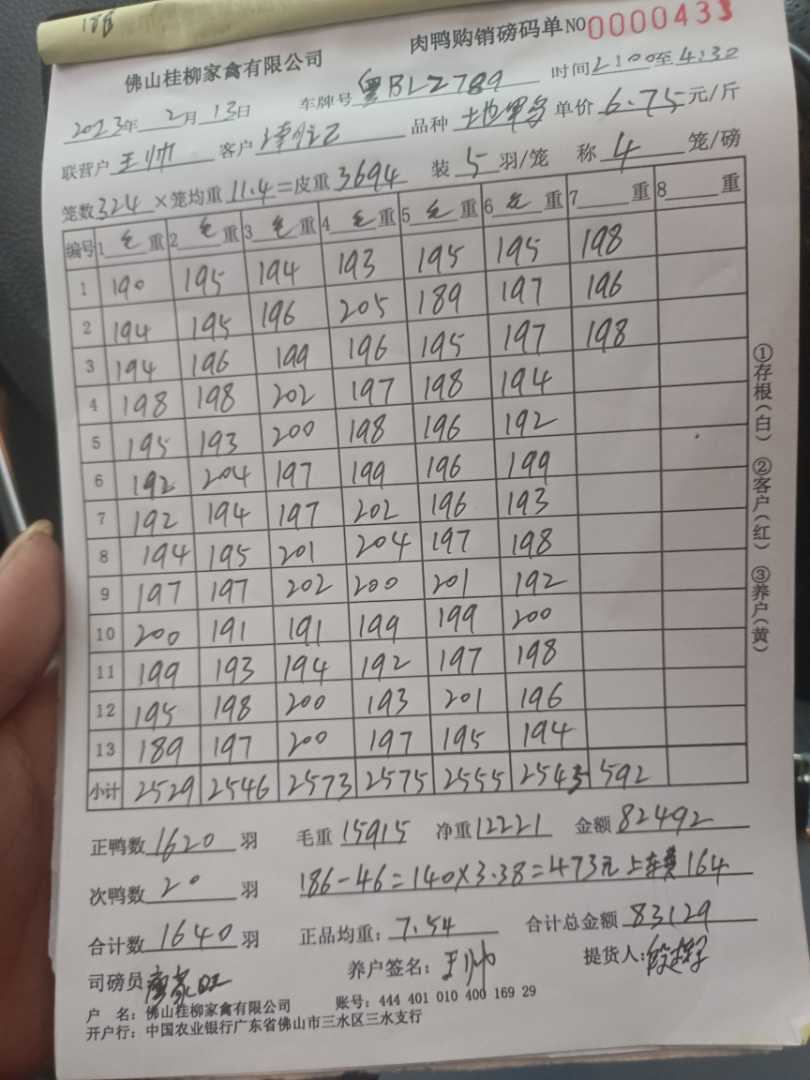 178
佛山桂柳家禽有限公司 肉鸭购销磅码单 NO 0000433
2023年 2月 13日 车牌号 粤BLZ789 时间2:00至4:30
联营户 王帅 客户 品种 单价 6.75元/斤
笼数324×笼均重11.4=皮重3694 装 5 羽/笼 称 4 笼/磅
编号 1毛重 2毛重 3毛重 4毛重 5毛重 6毛重 7 重 8 重
1 190 195 194 193 195 195 198
2 194 195 196 205 189 197 196
3 194 196 199 196 195 197 198
4 198 198 202 197 198 194
5 195 193 200 198 196 192
6 192 204 197 199 196 199
7 192 194 197 202 196 193
8 194 195 201 204 197 198
9 197 197 202 200 201 192
10 200 191 191 199 199 200
11 199 193 194 192 197 198
12 195 198 200 193 201 196
13 189 197 200 197 195 194
小计 2529 2546 2573 2575 2555 2545 592
正鸭数 1620 羽 毛重 15915 净重 12221 金额 82492
次鸭数 20 羽 186-46=140×3.38=473元 上车费164
合计数 1640 羽 正品均重: 7.54 合计总金额 83129
司磅员 养户签名: 王帅 提货人:
户 名: 佛山桂柳家禽有限公司 账号: 444 401 010 400 169 29
开户行: 中国农业银行广东省佛山市三水区三水支行
①存根(白) ②客户(红) ③养户(黄)